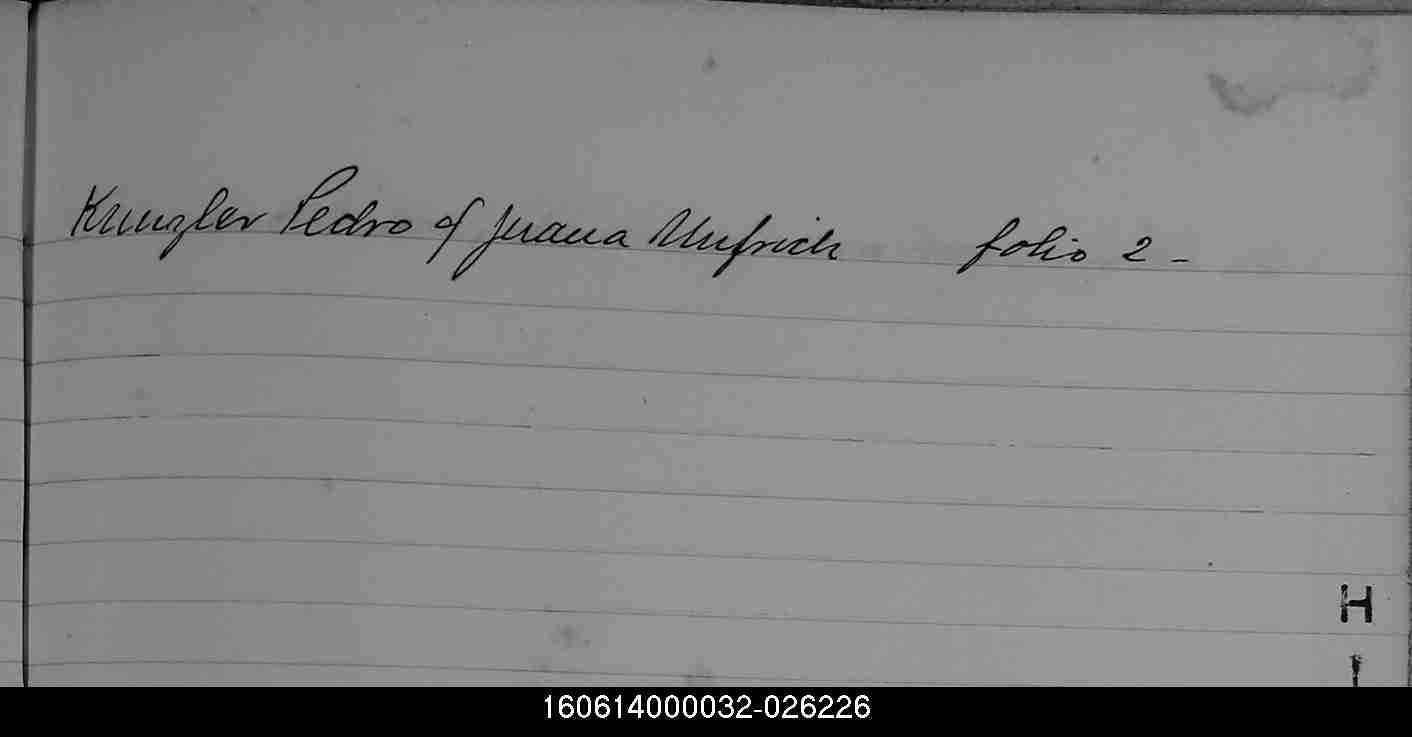 Kunzler Pedro y Juana Unfrich folio 2 -
H
I
160614000032-026226